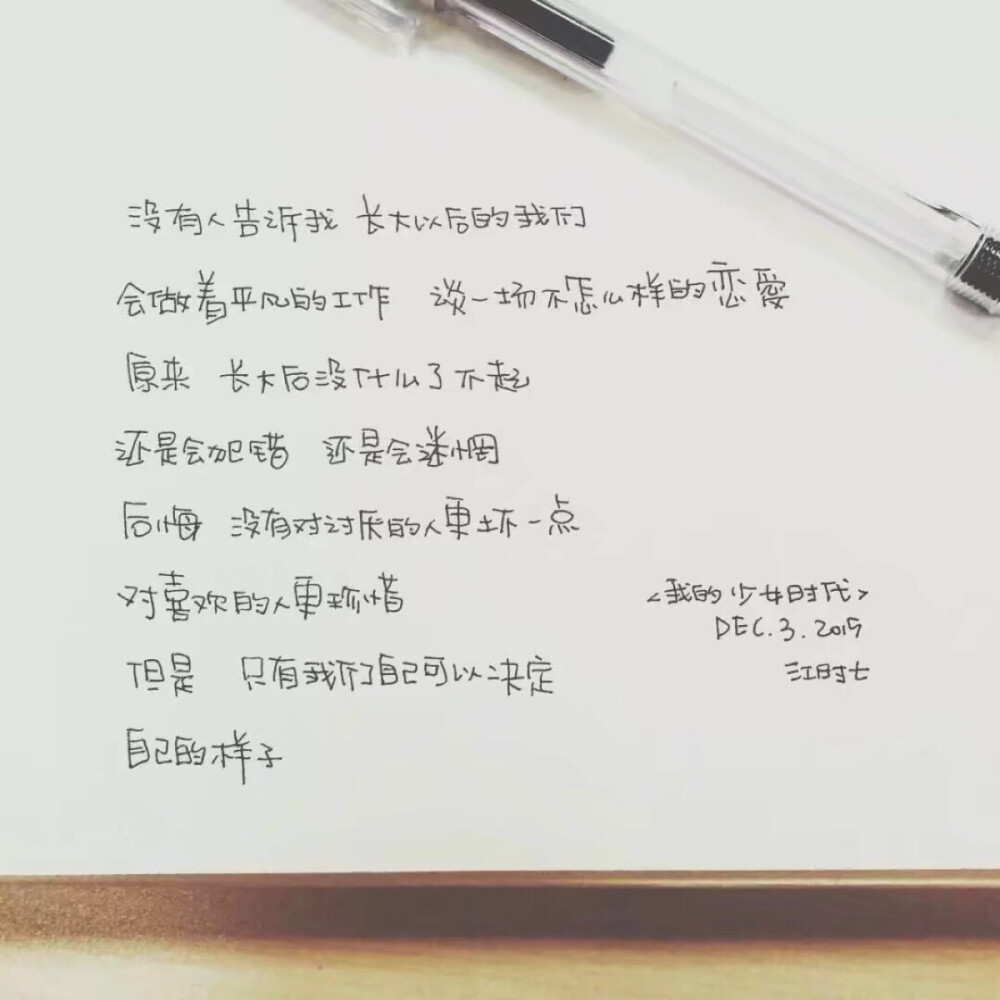 没有人告诉我 长大以后的我们
会做着平凡的工作 谈一场不怎么样的恋爱
原来 长大后没什么了不起
还是会犯错 还是会迷惘
后悔 没有对讨厌的人更坏一点
对喜欢的人更珍惜
但是 只有我们自己可以决定
自己的样子
<我的少女时代>
DEC.3.2015
江时七